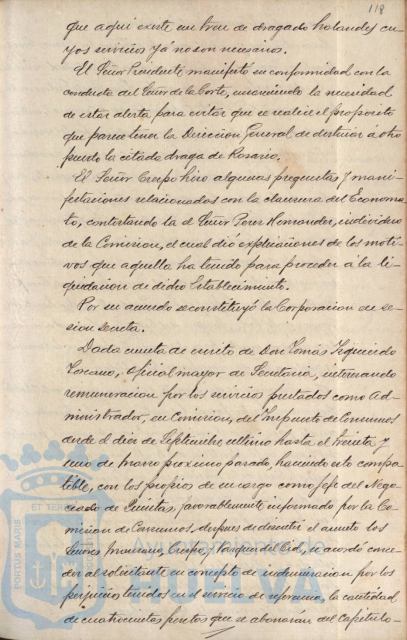 118
que aquí existe un tren de dragado holandes cu-
yos servicios ya no son necesarios.
El Señor Presidente manifestó su conformidad con la
conducta del Señor de la Corte, encareciendo la necesidad
de estar alerta para evitar que se realice el propósito
que parece tener la Direccion General de destinar a otro
puerto la citada draga de Rosario.
El Señor Crespo hizo algunas preguntas y mani-
festaciones relacionadas con la clausura del Economa-
to, contestando la el Señor Perez Hernandez, individuo
de la Comision, el cual dió explicaciones de los moti-
vos que aquella ha tenido para proceder á la li-
quidacion de dicho Establecimiento.
Por su acuerdo se constituyó la Corporacion en se-
sion secreta.
Dada cuenta de escrito de Don Tomás Izquierdo
Toscano, oficial mayor de Secretaría, interesando
remuneracion por los servicios prestados como Ad-
ministrador, en Comision, del Impuesto de Consumos
desde el dia de Septiembre ultimo hasta el treinta y
uno de marzo proximo pasado, haciendo esto compa-
tible, con los propios de su cargo como Jefe del Nego-
ciado de Quintas, favorablemente informado por la Co-
mision de Consumos, despues de discutir el asunto los
Señores Crespo, Vazquez del Cid, se acordó conce-
der al solicitante en concepto de indemnizacion por los
perjuicios tenidos en el servicio de referencia, la cantidad
de cuatrocientas pesetas que se abonarán del Capitulo
PORTUS MARIS
ET TERRAE
Ayuntamiento de
HUELVA